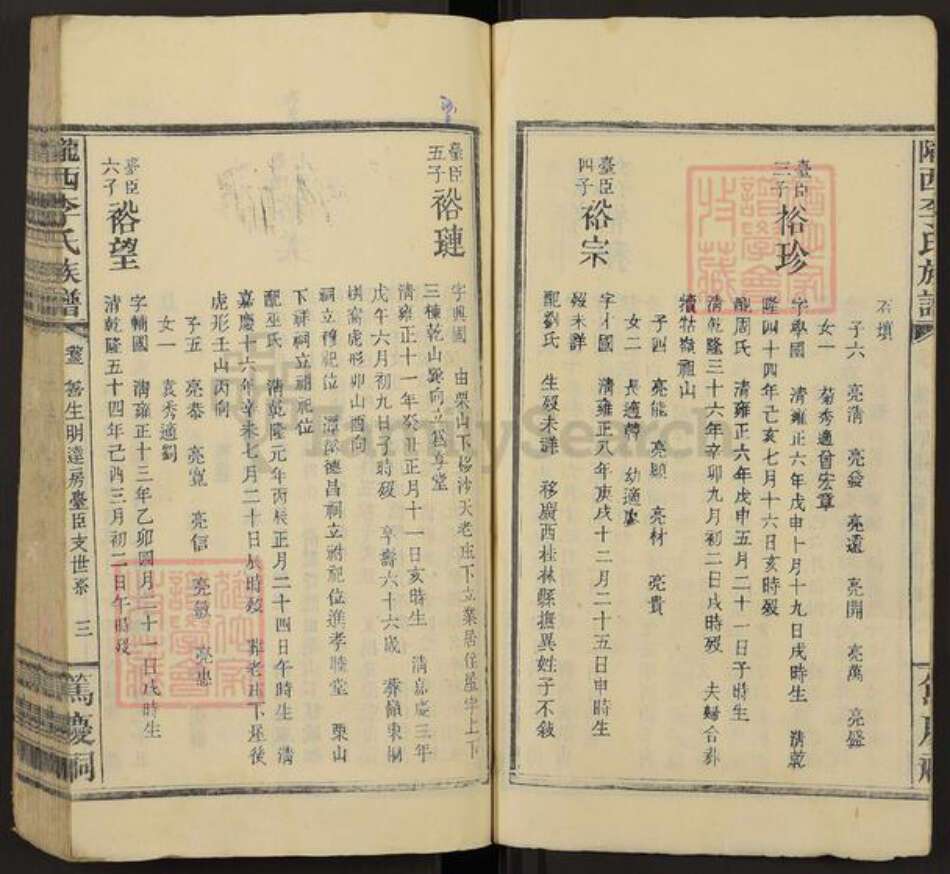 隴西李氏族譜
石墳
子六 亮清 亮發 亮還 亮開 亮萬 亮盛
女一 菊秀適曾宏章
臺臣三子 裕珍
字學國 清雍正六年戊申十月十九日戌時生 清乾
隆四十四年己亥七月十六日亥時歿
配周氏 清雍正六年戊申五月二十一日子時生
清乾隆三十六年辛卯九月初二日戌時歿 夫婦合葬
犢牯嶺祖山
子四 亮能 亮顯 亮材 亮貴
女二 長適韓 幼適廖
臺臣四子 裕宗
字才國 清雍正八年庚戌十二月二十五日申時生
歿未詳
配劉氏 生歿未詳 移廣西桂林縣撫異姓子不敘
臺臣五子 裕璉
字興國 由栗山下移沙天老庄下立業居住屋宇上下
三棟乾山巽向立為享堂
清雍正十一年癸丑正月十一日亥時生 清嘉慶三年
戊午六月初九日子時歿 享壽六十六歲 葬嶺東桐
棋窩虎形卯山酉向
祠立穆祀位 潭溪德昌祠立祔祀位進孝睦堂 栗山
下祥祠立祔祀位
配巫氏 清乾隆元年丙辰正月二十四日午時生 清
嘉慶十六年辛未七月二十日辰時歿 葬老庄下屋後
虎形壬山丙向
子五 亮恭 亮寬 亮信 亮敏 亮惠
女一 袁秀適劉
臺臣六子 裕望
字輔國 清雍正十三年乙卯四月二十一日戌時生
清乾隆五十四年己酉三月初二日午時歿
隴西李氏族譜 善生明達房臺臣支世系 三 篤慶祠
FamilySearch